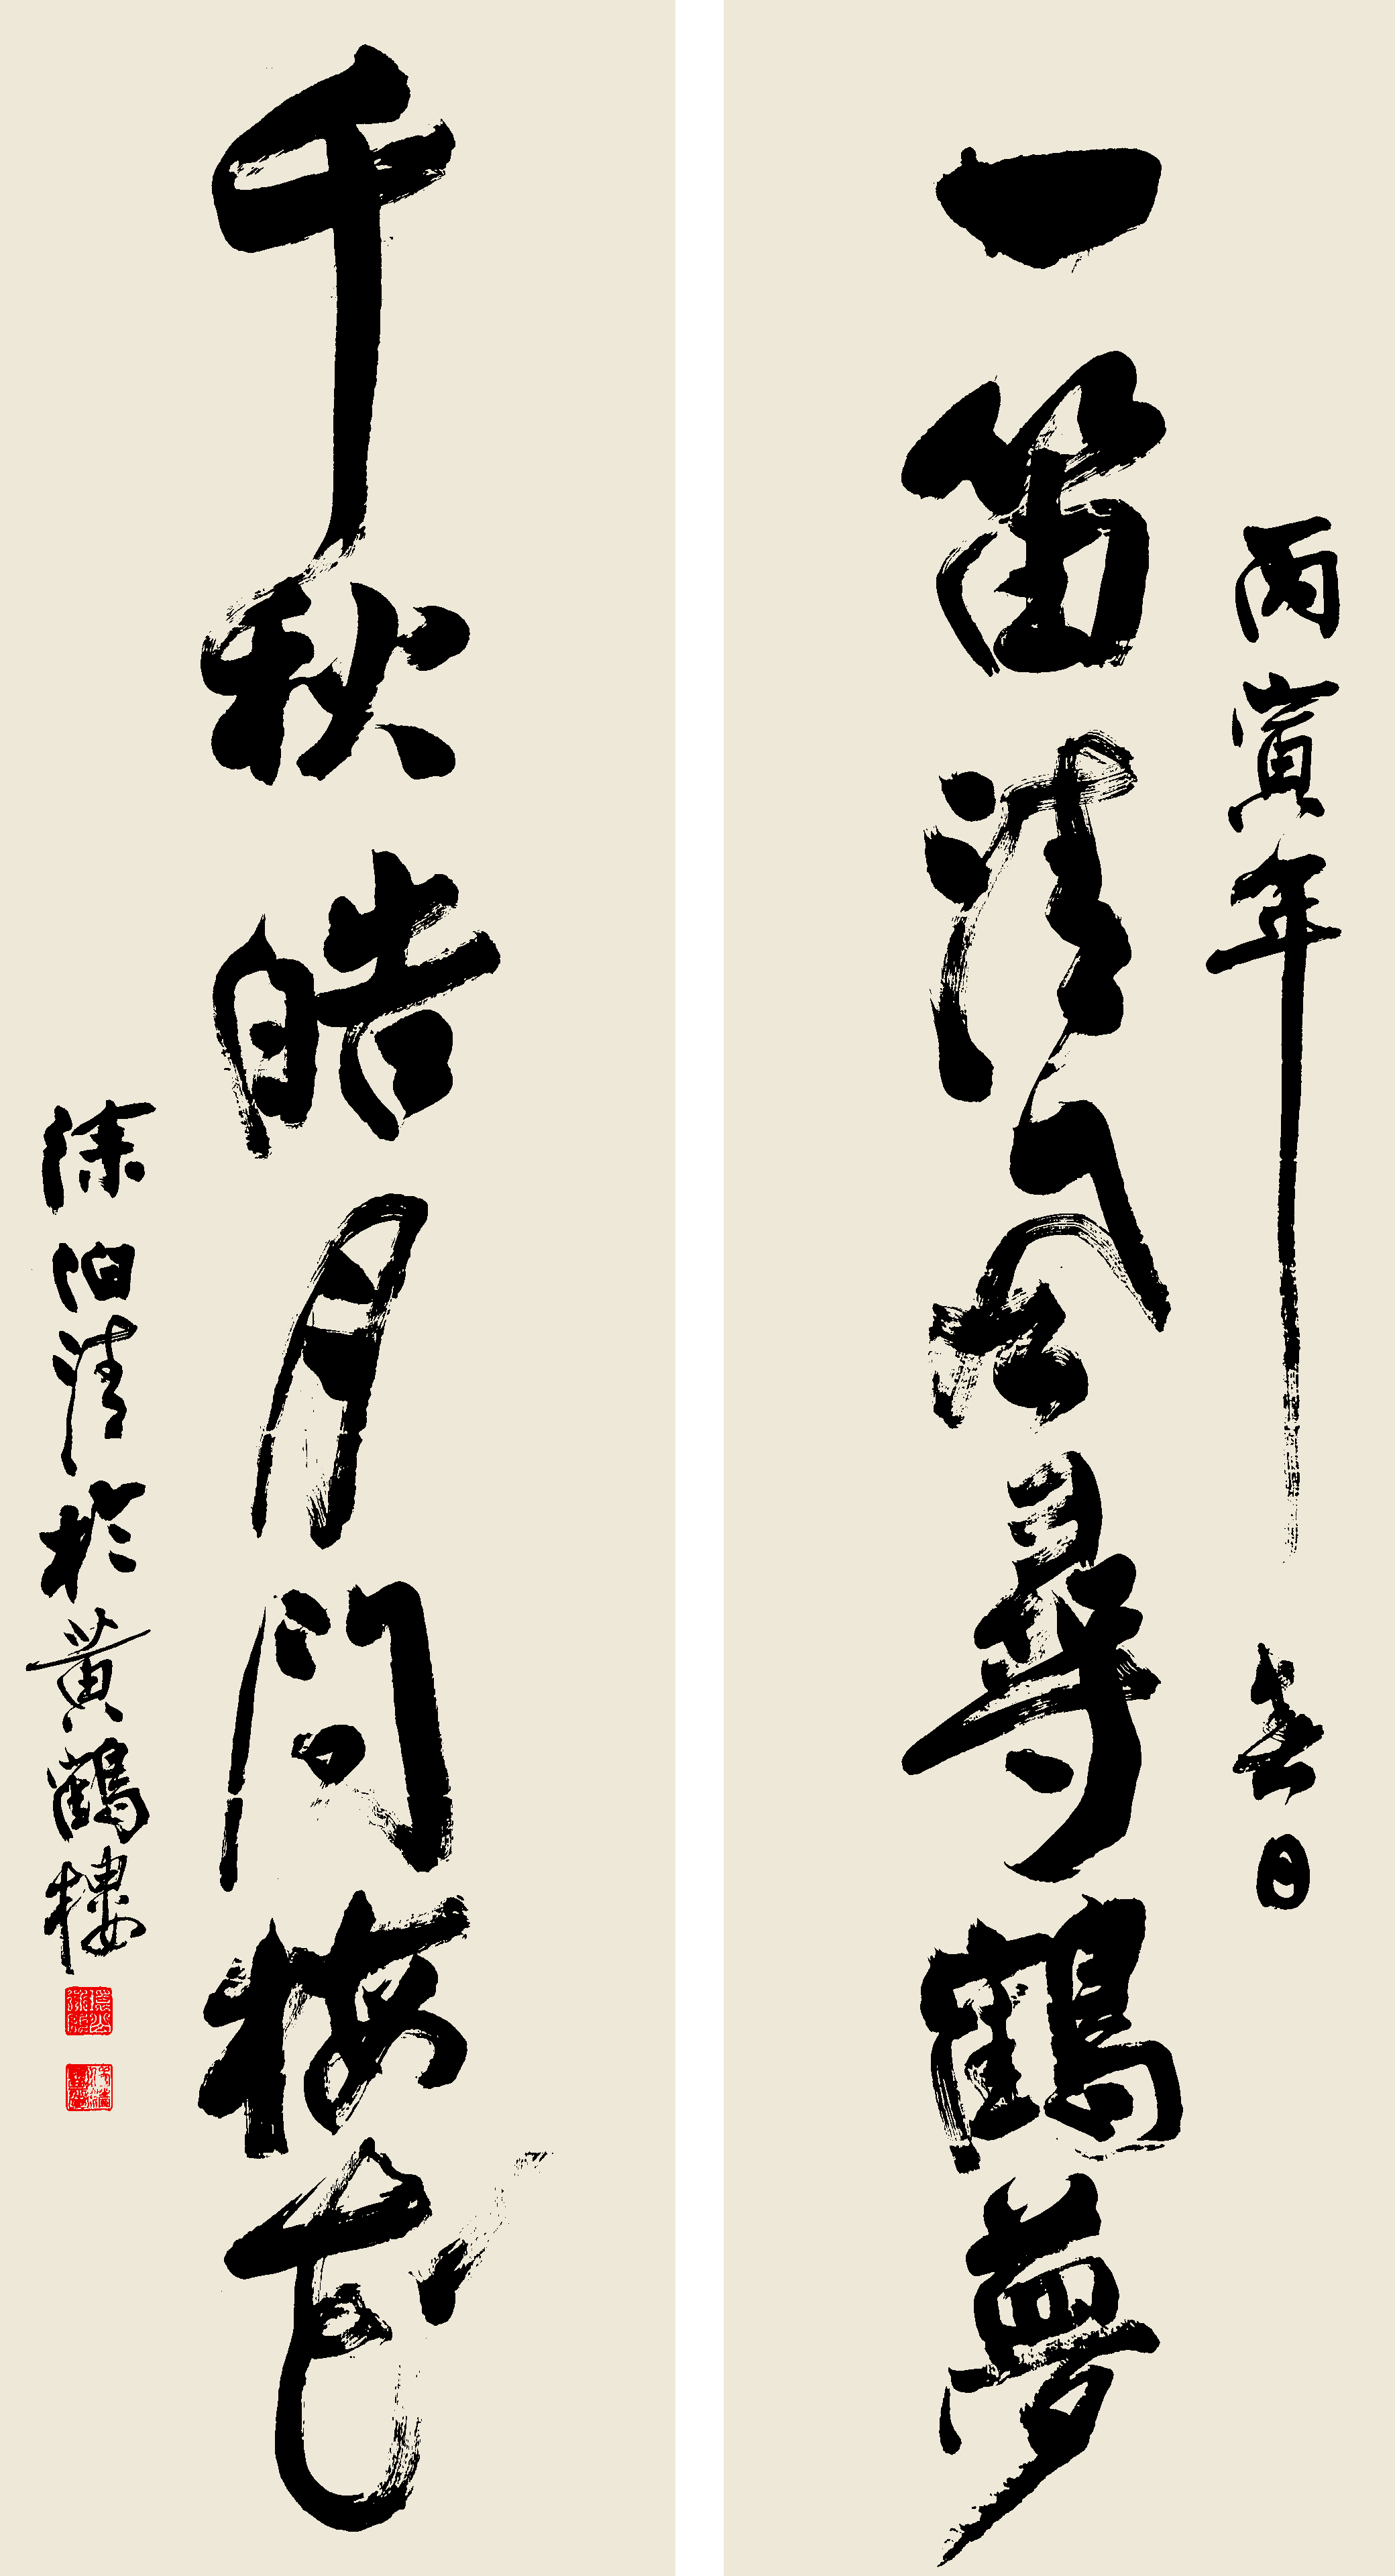 丙寅年春日
一笛清風尋鶴夢
千秋皓月問梅花
涂伯清於黄鶴樓